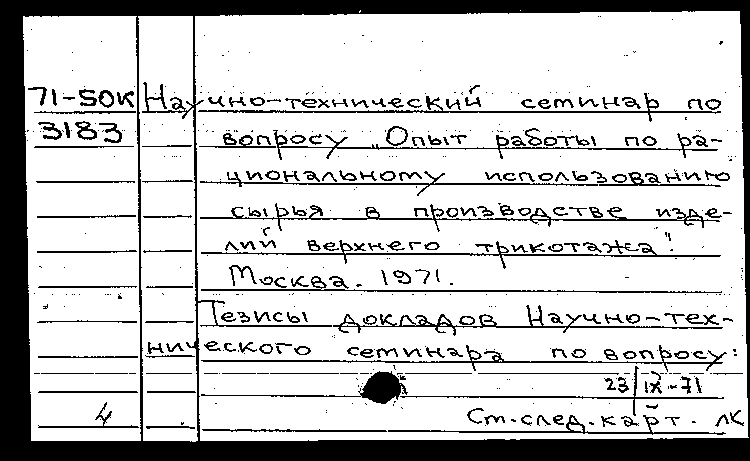 71-50К Научно-технический семинар по
3183 вопросу „Опыт работы по ра-
циональному использованию
сырья в производстве изде-
лий верхнего трикотажа".
Москва. 1971.
Тезисы докладов Научно-тех-
нического семинара по вопросу:
23/IX-71
4 См.след.карт. ЛК